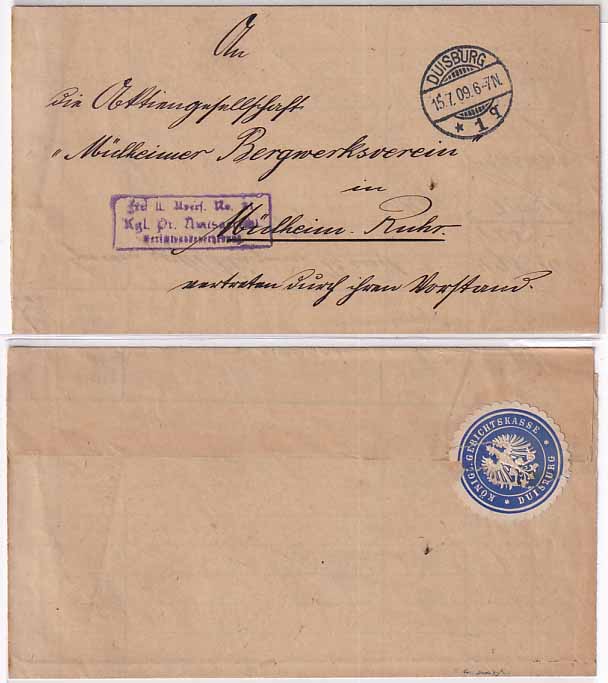 An
DUISBURG
15.7.09.6-7N.
* 1 q
die Aktiengesellschaft
"Mülheimer Bergwerksverein
in
Frei lt. Avers. No. 21
Kgl. Pr. Amtsgericht
Mülheim-Ruhr.
vertreten durch ihren Vorstand.
KÖNIGL. GERICHTSKASSE * DUISBURG *